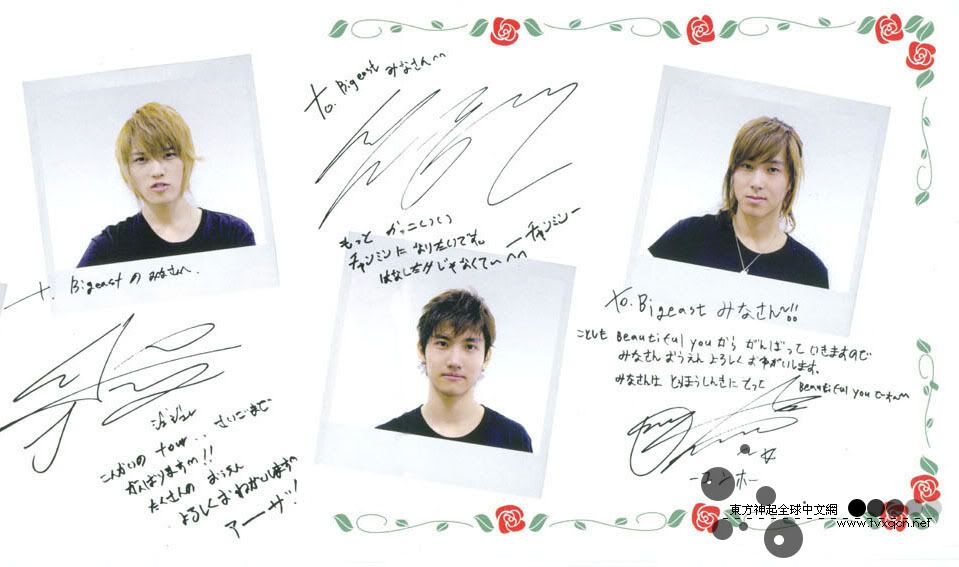 to. Bigeast みなさんへ
もっと かっこいい
チャンミンに なりたいです。
はなしだけじゃなくて〜^^
ーチャンミンー
Bigeast の みなさんへ
ジェジュン
こんかいの tour.. さいごまで
がんばります^^!!
たくさんの おうえん
よろしくおねがいします^^
アーザ!
to. Bigeast みなさん〜!!
ことしも Beautiful youから がんばって いきますので
みなさん おうえん よろしく おねがいします。
みなさんは とうほうしんきに とって
Beautiful you です^^
ーユンホー
東方神起全球中文網
www.tvxqch.net